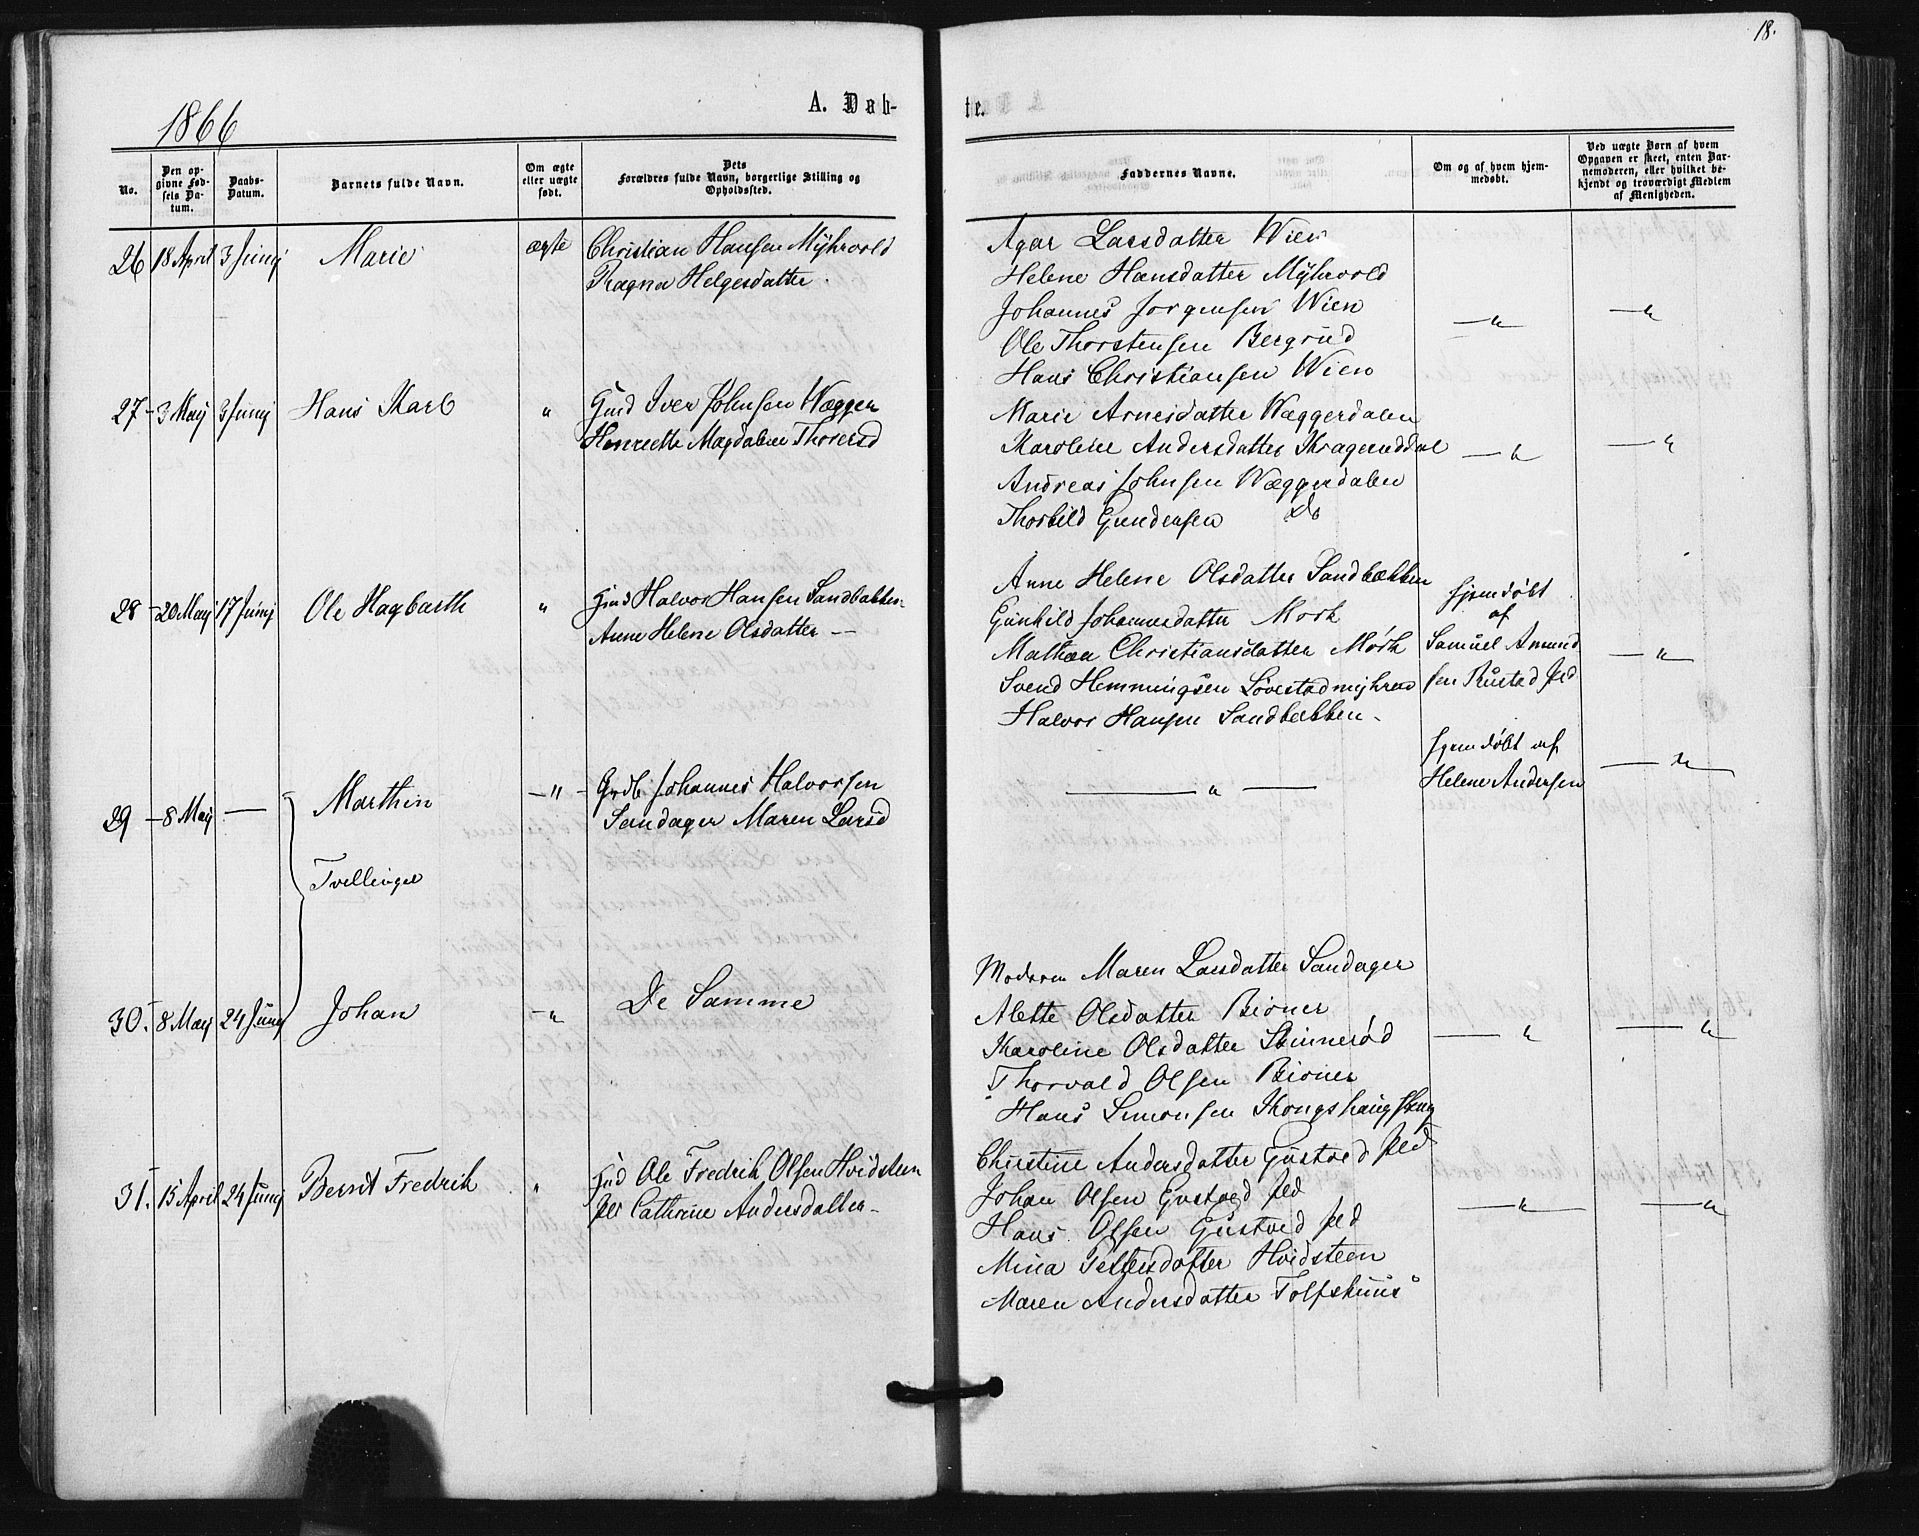 18.
1866
A. Døb-
te.
No.
Den op-
givne Fød-
sels Da-
tum.
Daabs-
Datum.
Barnets fulde Navn.
Om ægte
eller uægte
født.
Dets
Forældres fulde Navn, borgerlige Stilling og
Opholdssted.
Faddernes Navne.
Om og af hvem hjem-
medøbt.
Ved uægte Børn af hvem
Opgaven er skeet, enten Bar-
nemoderen, eller hvilket be-
kjendt og troværdigt Medlem
af Menigheden.
26 18 April 3 Junij Marie ægte Christian Hansen Mÿhrvold
Ragna Helgesdatter.
Agar Larsdatter Wien
Helene Hansdatter Mÿhrvold
Johannes Jorgensen Wien
Ole Thorstensen Bergrud
Hans Christiansen Wien
27 - 3 Maij 3 Junij Hans Karl " Gmd Iver Johnsen Wægger
Henriette Magdalene Thorersd
Marie Arnesdatter Wæggerdalen
Karoline Andersdatter Kragerud
Andreas Johnsen Wæggerdalen
Thorkild Gundersen Do
28 - 20 Maij 17 Junij Ole Hagbarth " Gmd Halvor Hansen Sandbakken
Anne Helene Olsdatter —
Anne Helene Olsdatter Sandbækken
Gunhild Johannesdatter Mork
Mathea Christiansdatter Mörk
Svend Hemmingsen Lövestadmyhren
Halvor Hansen Sandbækken -
Hjemdøbt
af
Samuel Amund
sen Rustad
29 - 8 Maij — Marthin — " - Johannes Halvorsen
Sandager Maren Larsd
Hjemdøbt af
Helene Andersen
Tvellinger
30. 8 Maij 24 Junij Johan - " De Samme
Modren Maren Larsdatter Sandager
Alette Olsdatter Bioner
Karoline Olsdatter Skinnerød
Thorvald Olsen Bioner
Hans Simonsen
31. 15 April 24 Junij Bernt Fredrik " Gmd Ole Fredrik Olsen Hvidsteen
Cathrine Andersdatter -
Christine Andersdatter
Johan Olsen
Hans Olsen
Mina Pettersdatter Hvidsteen
Maren Andersdatter Tolfshuus